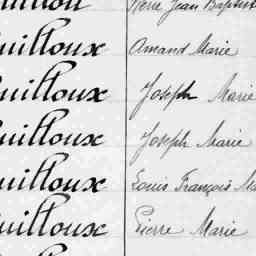 uillou Pierre Jean Baptist
uilloux Amand Marie
uilloux Joseph Marie
uilloux Joseph Marie
uilloux Louis François Ma
uilloux Pierre Marie